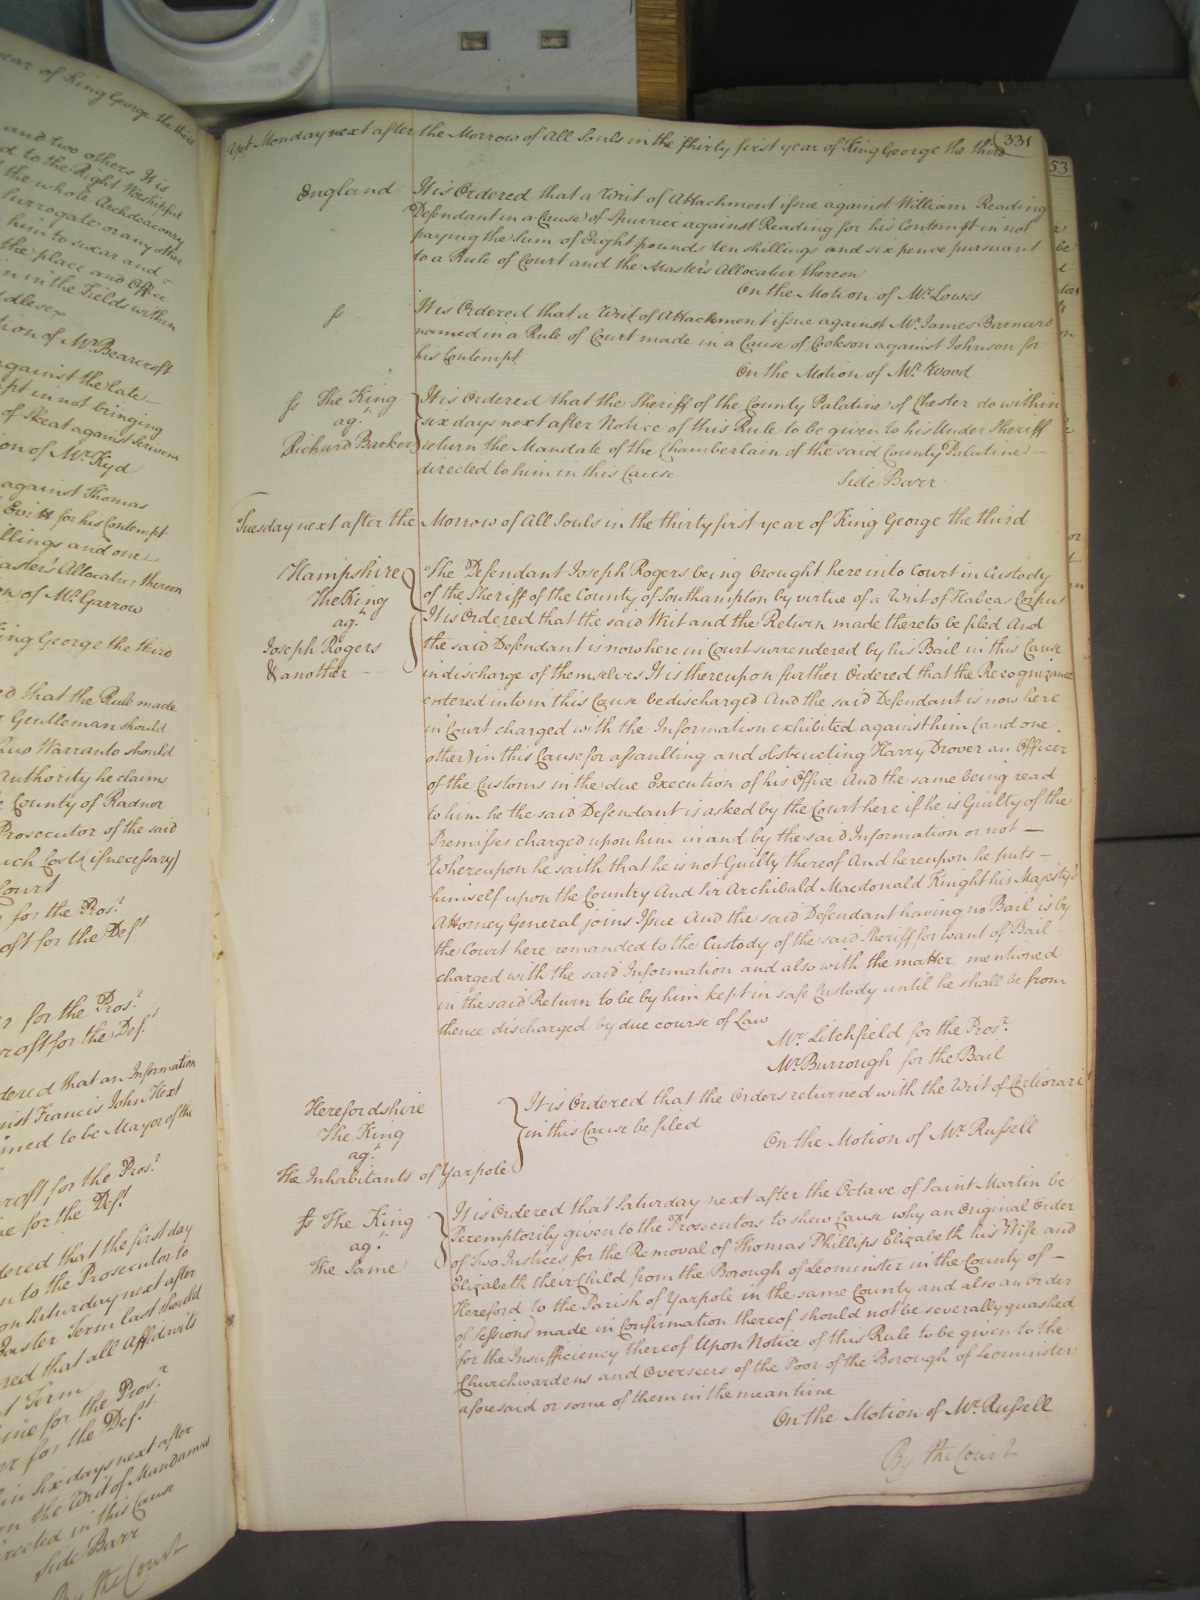 ear of King George the third
and two others It is
d to the Right Worshipful
the whole Archdeaconry
Surrogate or any other
him to swear and
the place and Office
n in the Fields within
dlesex
tion of Mr. Bearcroft
against the late
pt in not bringing
of Skeat against Scrivens
on of Mr. Kyd
against Thomas
Evitt for his Contempt
llings and one
aster's Allocatur thereon
on of Mr. Garrow
ing George the third
ed that the Rule made
Gentleman should
Quo Warranto should
Authority he claims
County of Radnor
Prosecutor of the said
uch Costs (if necessary)
Court
for the Pros.r
oft for the Def.t
r for the Pros.r
croft for the Def.t
dered that an Information
nst Francis John Hext
imed to be Mayor of the
croft for the Pros.r
ne for the Def.t
dered that the first day
n to the Prosecutor to
on Saturday next after
Easter Term last should
red that all Affidavits
t Term
ine for the Pros.r
er for the Def.t
in Six days next after
rn the Writ of Mandamus
rected in this Cause
Side Barr
By the Court
331
53
Yet Monday next after the Morrow of All Souls in the thirty first year of King George the third
England
It is Ordered that a Writ of Attachment issue against William Reading
Defendant in a Cause of Spurrier against Reading for his Contempt in not
paying the Sum of Eight pounds ten shillings and six pence pursuant
to a Rule of Court and the Master's Allocatur thereon
On the Motion of Mr. Lowes
s
It is Ordered that a Writ of Attachment issue against Mr. James Barnard
named in a Rule of Court made in a Cause of Cookson against Johnson for
his Contempt
On the Motion of Mr. Wood
ss The King
ag.t
Richard Barker
It is Ordered that the Sheriff of the County Palatine of Chester do within
six days next after Notice of this Rule to be given to his Under Sheriff
return the Mandate of the Chamberlain of the said County Palatine
directed to him in this Cause
Side Barr
Tuesday next after the Morrow of All Souls in the thirty first year of King George the third
Hampshire
The King
ag.t
Joseph Rogers
& another
The Defendant Joseph Rogers being brought here into Court in Custody
of the Sheriff of the County of Southampton by virtue of a Writ of Habeas Corpus
It is Ordered that the said Writ and the Return made thereto be filed And
the said Defendant is now here in Court surrendered by his Bail in this Cause
in discharge of themselves It is thereupon further Ordered that the Recognizance
entered into in this Cause be discharged And the said Defendant is now here
in Court charged with the Information exhibited against him (and one
other) in this Cause for assaulting and obstructing Harry Drover an Officer
of the Customs in the due Execution of his Office And the same being read
to him he the said Defendant is asked by the Court here if he is Guilty of the
Premisses charged upon him in and by the said Information or not —
Whereupon he saith that he is not Guilty thereof And hereupon he puts —
himself upon the Country And Sir Archibald Macdonald Knight his Majesty's
Attorney General joins Issue And the said Defendant having no Bail is by
the Court here remanded to the Custody of the said Sheriff for want of Bail
charged with the said Information and also with the matter mentioned
in the said Return to be by him kept in safe Custody until he shall be from
thence discharged by due course of Law
Mr. Litchfield for the Pros.r
Mr. Burrough for the Bail
Herefordshire
The King
ag.t
The Inhabitants of Yarpole
It is Ordered that the Orders returned with the Writ of Certiorari
in this Cause be filed
On the Motion of Mr. Russell
ss The King
ag.t
The Same
It is Ordered that Saturday next after the Octave of Saint Martin be
Peremptorily given to the Prosecutors to shew Cause why an Original Order
of Two Justices for the Removal of Thomas Phillips Elizabeth his Wife and
Elizabeth their Child from the Borough of Leominster in the County of —
Hereford to the Parish of Yarpole in the same County and also an Order
of Sessions made in Confirmation thereof should not be severally quashed
for the Insufficiency thereof Upon Notice of this Rule to be given to the
Churchwardens and Overseers of the Poor of the Borough of Leominster
aforesaid or some of them in the mean time
On the Motion of Mr. Russell
By the Court